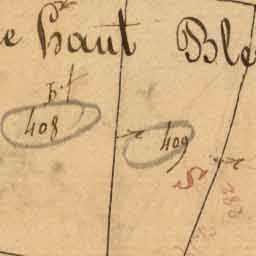 e haut Ble
408
409
S
283